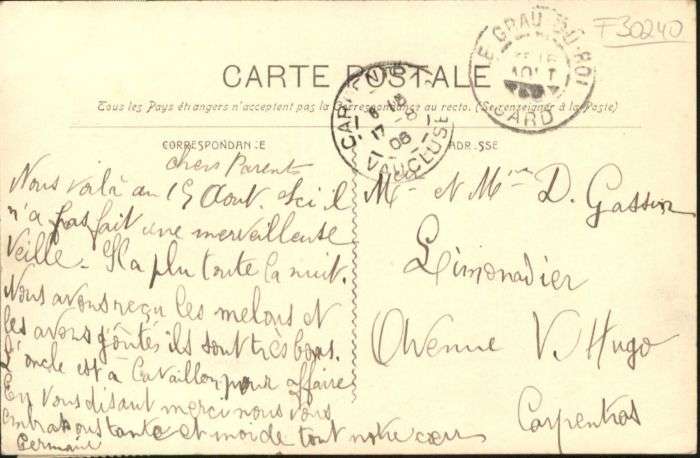 F30240
LE GRAU-DU-ROI
GARD
CARTE POSTALE
Tous les Pays étrangers n'acceptent pas la Correspondance au recto. (Se renseigner à la Poste)
CARPENTRAS
17 - 8
08
VAUCLUSE
CORRESPONDANCE
ADRESSE
chers Parents
Nous voilà au 15 Aout. Ici il
n'a pas fait une merveilleuse
Veille. Il a plu toute la nuit.
Nous avons reçu les melons et
les avons goûtés ils sont très bons.
L'oncle est à Cavaillon pour affaire
En vous disant merci nous vous
embrassons tante et moi de tout notre cœur
Germaine
Mr et Mme D. Gassin
Limonadier
Avenue V. Hugo
Carpentras